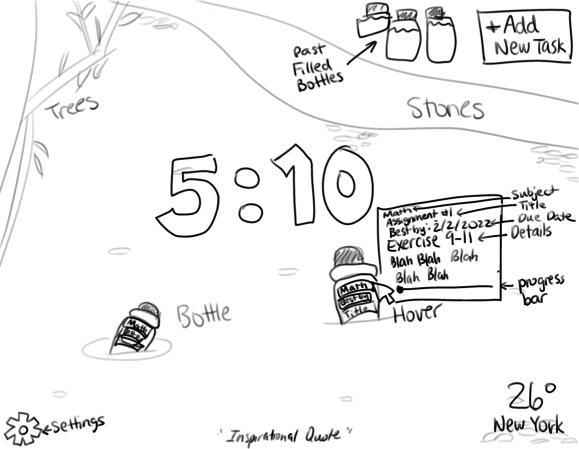 + Add
New Task
Past
Filled
Bottles
Trees
Stones
5:10
Math
Assignment #1
Best by: 2/2/2022
Exercise 9-11
Blah Blah Blah
Blah Blah
Subject
Title
Due Date
Details
progress
bar
Math
Best by
Title
Hover
Math
Bottle
Settings
"Inspirational Quote"
26°
New York